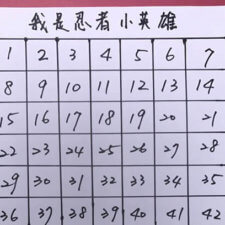 我是忍者小英雄
1 2 3 4 5 6 7
8 9 10 11 12 13 14
15 16 17 18 19 20 21
22 23 24 25 26 27 28
29 30 31 32 33 34 35
36 37 38 39 40 41 42